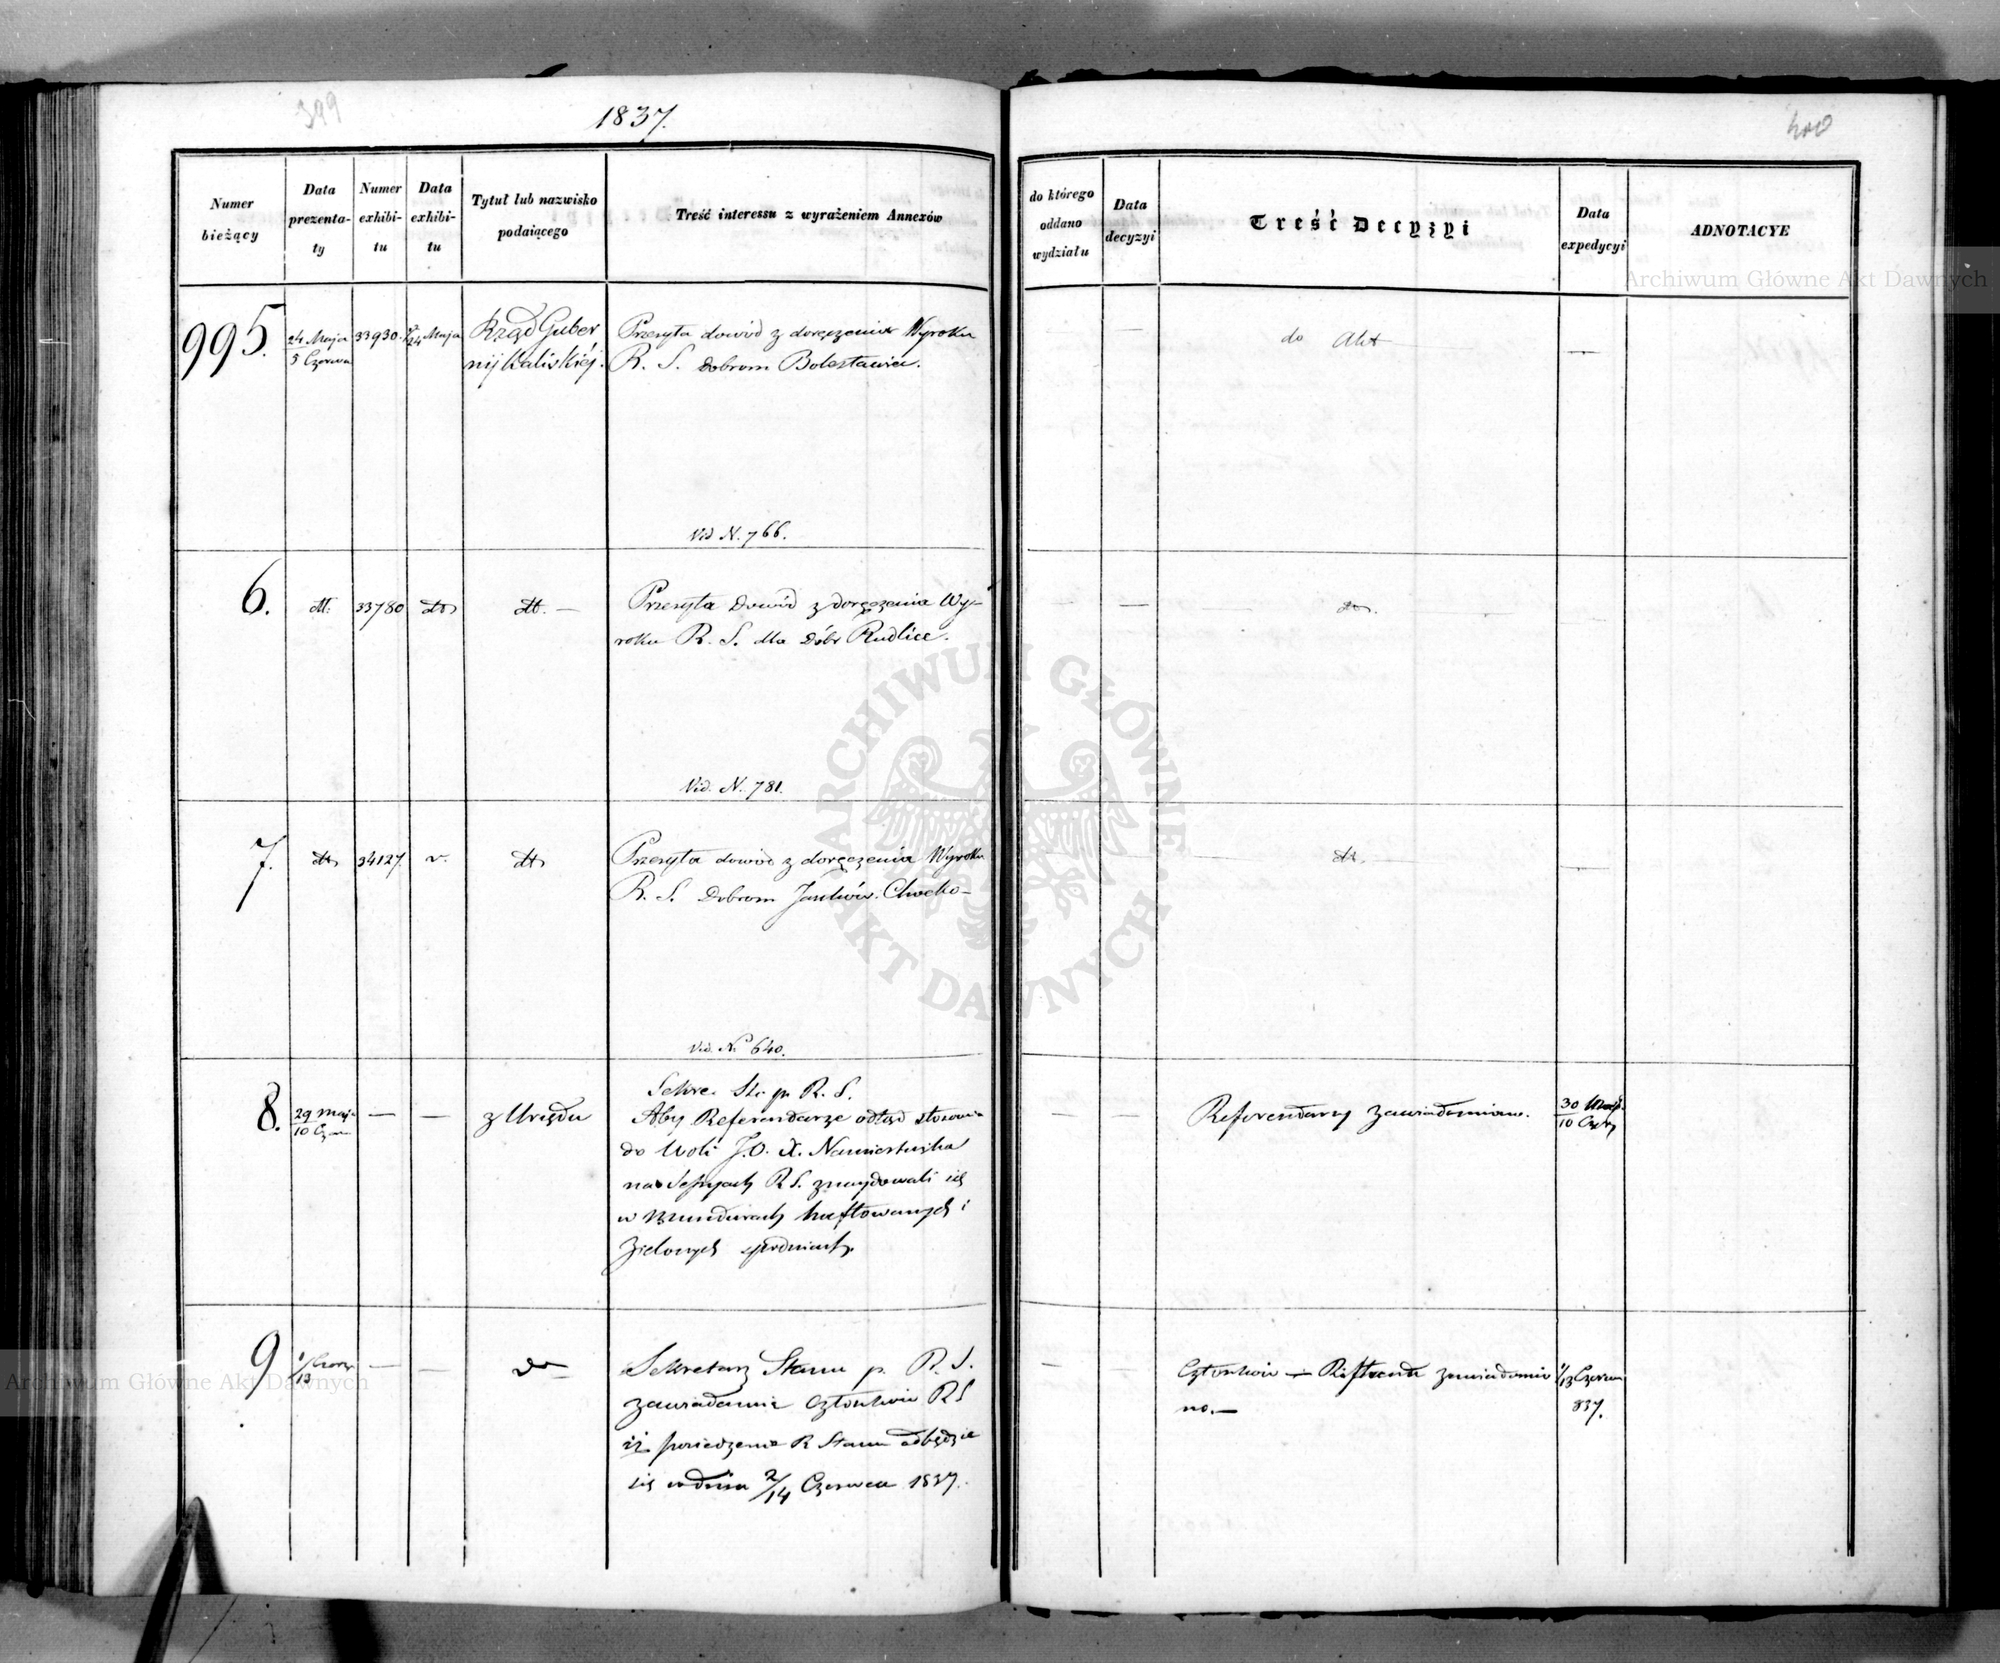 399
1837.
400
Numer bieżący
Data prezentaty
Numer exhibitu
Data exhibitu
Tytuł lub nazwisko podaiącego
Treść interessu z wyrażeniem Annexów
do którego oddano wydziału
Data decyzyi
Treść Decyzyi
Data expedycyi
ADNOTACYE
Archiwum Główne Akt Dawnych
995. 24 Maja 33930. 24 Maja Rząd Guber Przesyła dowód z doręczenia Wyroku do Akt —
5 Czerwca nij Kaliskiéj. R. S. Dobrom Bolesławiec.
Vid N. 766.
6. dtt. 33780 dtto dtt. — Przesyła Dowód z doręczenia Wy- — — dtto. —
roku R. S. dla Dóbr Rudlice.
Vid. N. 781.
7. dtto 34127. v. dtto Przesyła dowód z doręczenia Wyroku dtto. —
R. S. Dobrom Janków. Chocho-
Vid. No 640.
Sekre. St. p. R. S.
8. 29 Maja — — z Urzędu Aby Referendarze odtąd stosownie — — Referendarzy zawiadomiono. 30 Maja
10 Czer. do Woli J. O. X. Namiestnika 10
na Sessyach R S. znaydowali się
w Mundurach haftowanych i
Zielonych spodniach.
9 1/13 Czerw — — do — Sekretarz Stanu p. R. S. — — Członków — zawiadomio 1/13 Czerwca
zawiadamia Członków RS no. — 837.
iż posiedzenie R Stanu odbędzie
się w dniu 2/14 Czerwca 1837.
Archiwum Główne Akt Dawnych
ARCHIWUM GŁÓWNE AKT DAWNYCH